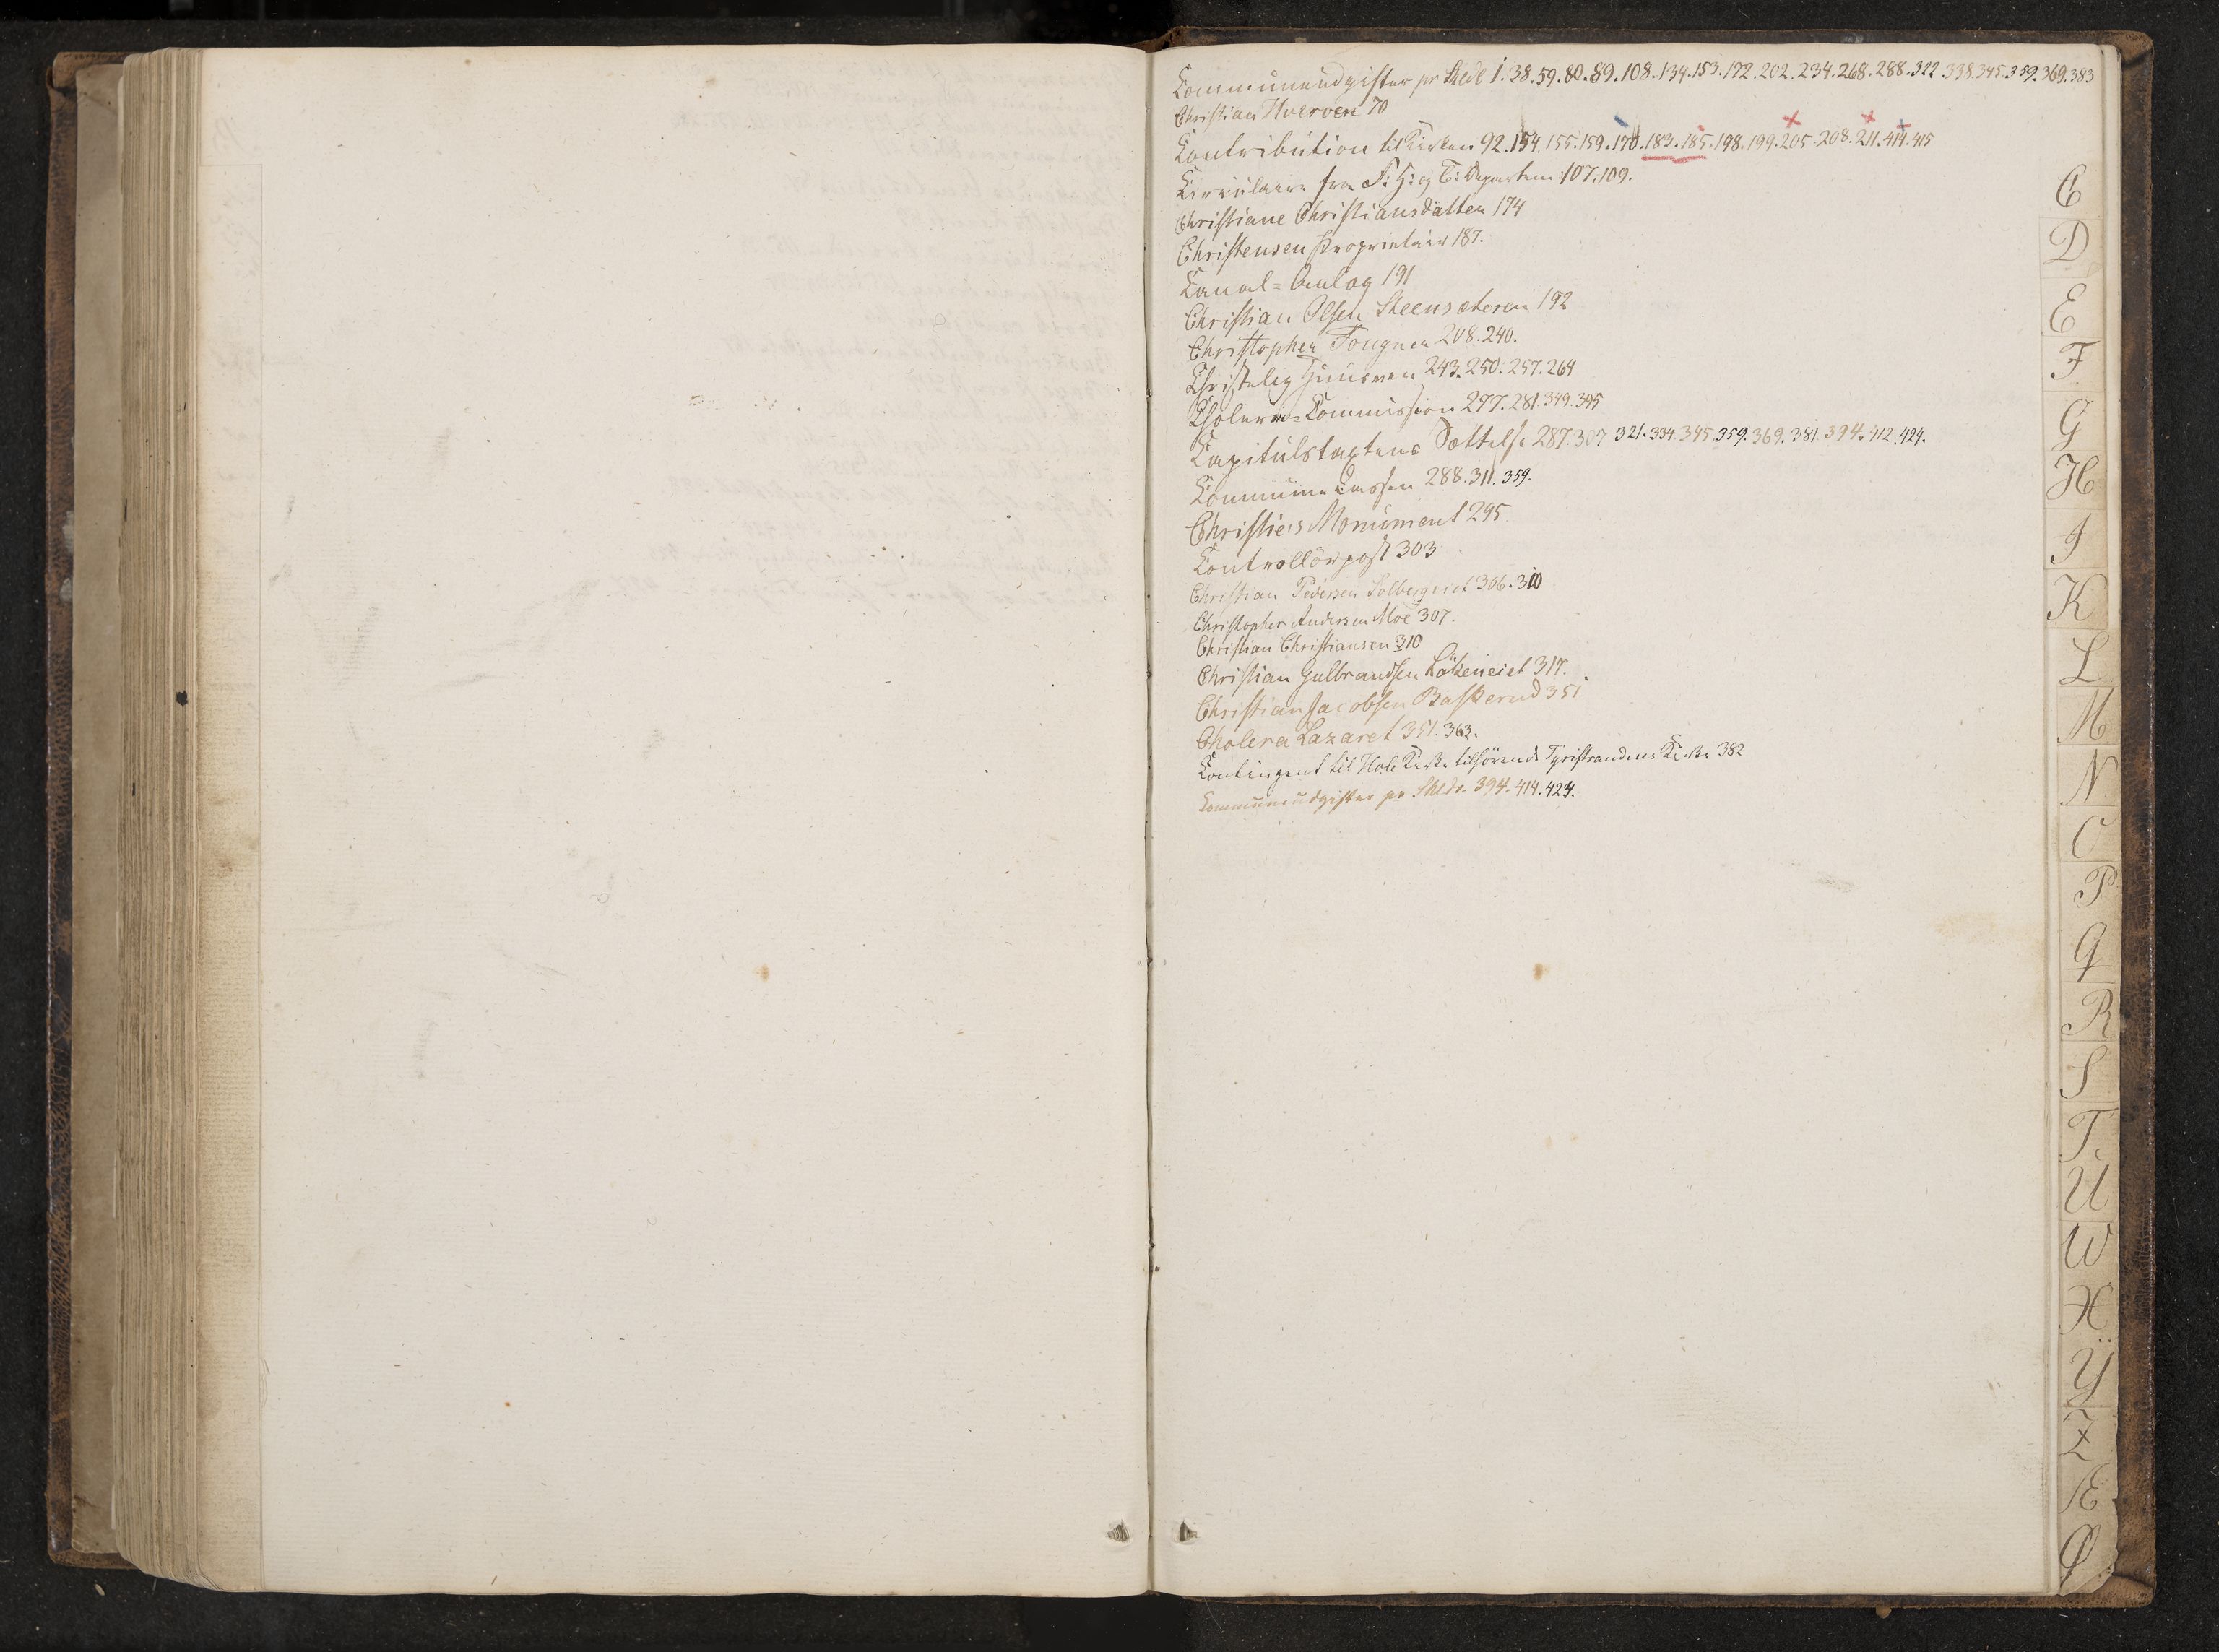 Communeudgifter pr Skede 1.38.59.80.89.108.134.153.172.202.234.268.288.322.338.345.359.369.383
Christian Hverven 70
Contribution til Kirken 92.154.155.159.170.183.185.198.199.205.208.211.414.415
Circulaire fra Departem: 107.109.
Christiane Christiansdatter 174
Christensen Proprietair 187.
Canal=Anlæg 191
Christian Olsen Steensæteren 192
Christopher Fougner 208.240.
Christelig Huusven 243.250.257.264
Cholera=Commission 277.281.349.395
Capitulstaxtens Sættelse 287.307 321.334.345.359.369.381.394.412.424.
Commune Cassen 288.311.359.
Christies Monument 295
Controllörpost 303
Christian Pedersen Solbergeiet 306.310
Christopher Andersen Moe 307.
Christian Christiansen 310
Christian Gulbrandsen Løkeneiet 317.
Christian Jacobsen Baskerud 351
Cholera Lazaret 351.363.
Contingent til Hole Kirke tilhörende Tyristrandens Kirke 382
Communeudgifter pr Skdr. 394.414.424.
C
D
E
F
G
H
I
K
L
M
N
O
P
Q
R
S
T
U
W
X
Ÿ
Z
Æ
Ø